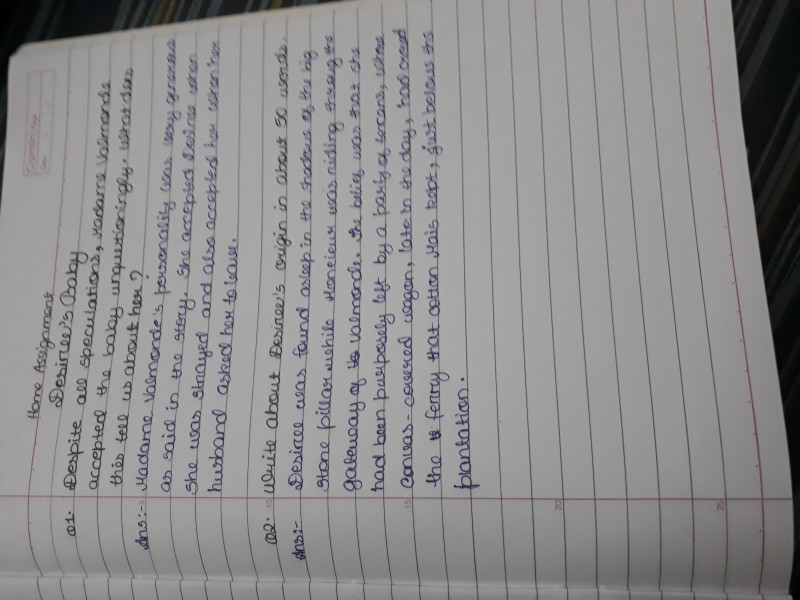 Home Assignment
Desiree's Baby
Q1. Despite all speculations, Madame Valmonde
accepted the baby unquestioningly. What does
this tell us about her?
Ans:- Madame Valmonde's personality was very generous
as said in the story. She accepted Desiree when
she was strayed and also accepted her when her
husband asked her to leave.
Q2. Write about Desiree's origin in about 50 words.
Ans:- Desiree was found asleep in the shadow of the big
stone pillar while Moncieur was riding through the
gateway of Valmonde. The belief was that she
had been purposely left by a party of texans, whose
canvas-covered wagon, late in the day, had crossed
the ferry that cotton Mais kept, just below the
plantation.
10
15
20
25